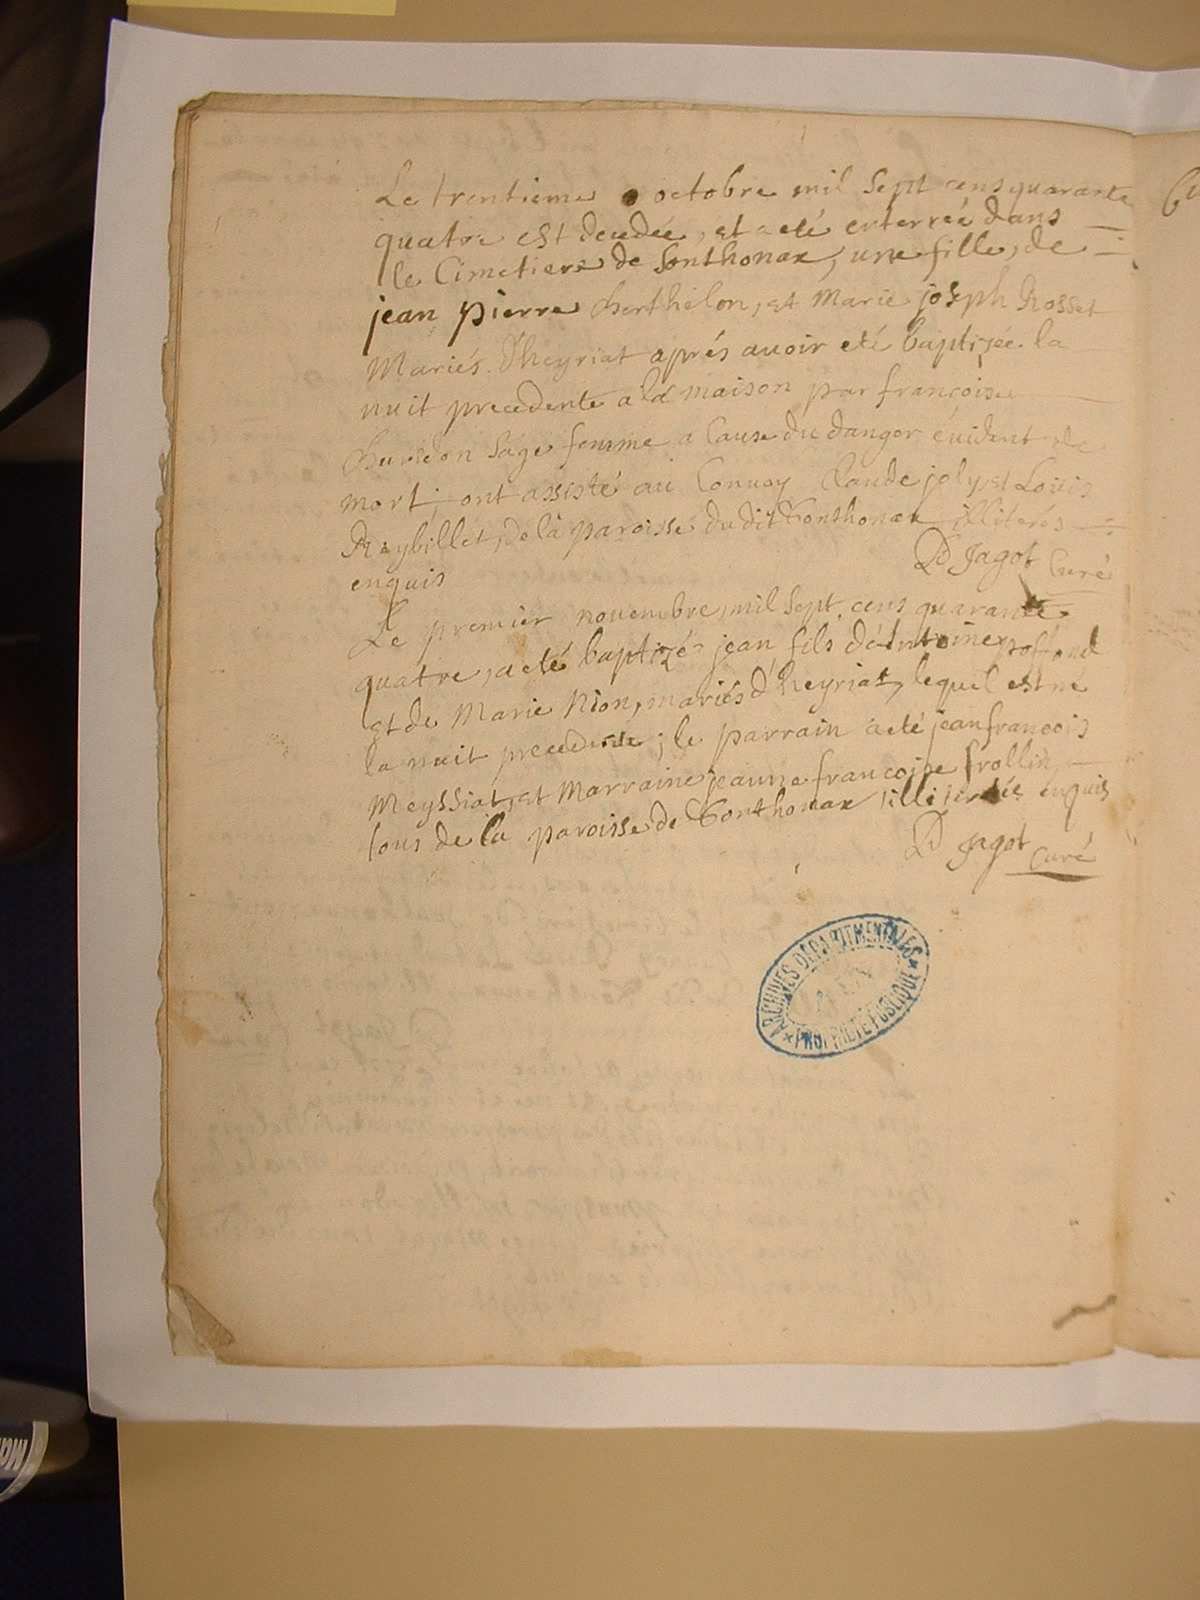 Le trentieme octobre mil sept cens quarante
quatre est decedée, et a eté enterreé dans
le Cimetiere de Sonthonax, une fille, de
jean pierre Berthelon, et Marie joseph Rosset
Mariés d'heyriat aprés avoir eté baptizée la
nuit precedente a la maison par françoise
sage femme a Cause du danger évident de
mort; ont assisté au Convoy Claude joly, et Louis
Reybillet, de la paroisse du dit Sonthonax illiterés
enquis
D Jagot Curé
Le premier novembre, mil sept cens quarante
quatre, a eté baptizé jean fils d'Antoine
et de Marie Nion, mariés d'heyriat, lequel est né
la nuit precedente; le parrain a eté jean francois
Meyssiat, et Marraine jeanne francoise frollin
tous de la paroisse de Sonthonax illiterés enquis
D Jagot
Curé
ARCHIVES DÉPARTEMENTALES
PROPRIÉTÉ PUBLIQUE